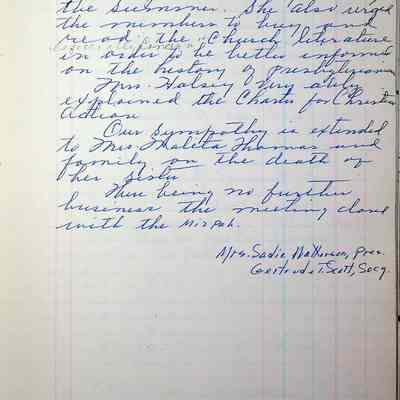 the Summer. She also urged
the members to buy and
read the Church literature
in order to be better informed
on the history of Presbyterianism
Mrs. Halsey very ably
explained the Charts for Christian
Action
Our Sympathy is extended
to Mrs. Maleta Thomas and
family on the death of
her sister
There being no further
business the meeting closed
with the Mizpah.
Mrs. Sadie, Pres.
Gertrude T. Scott, Secy.